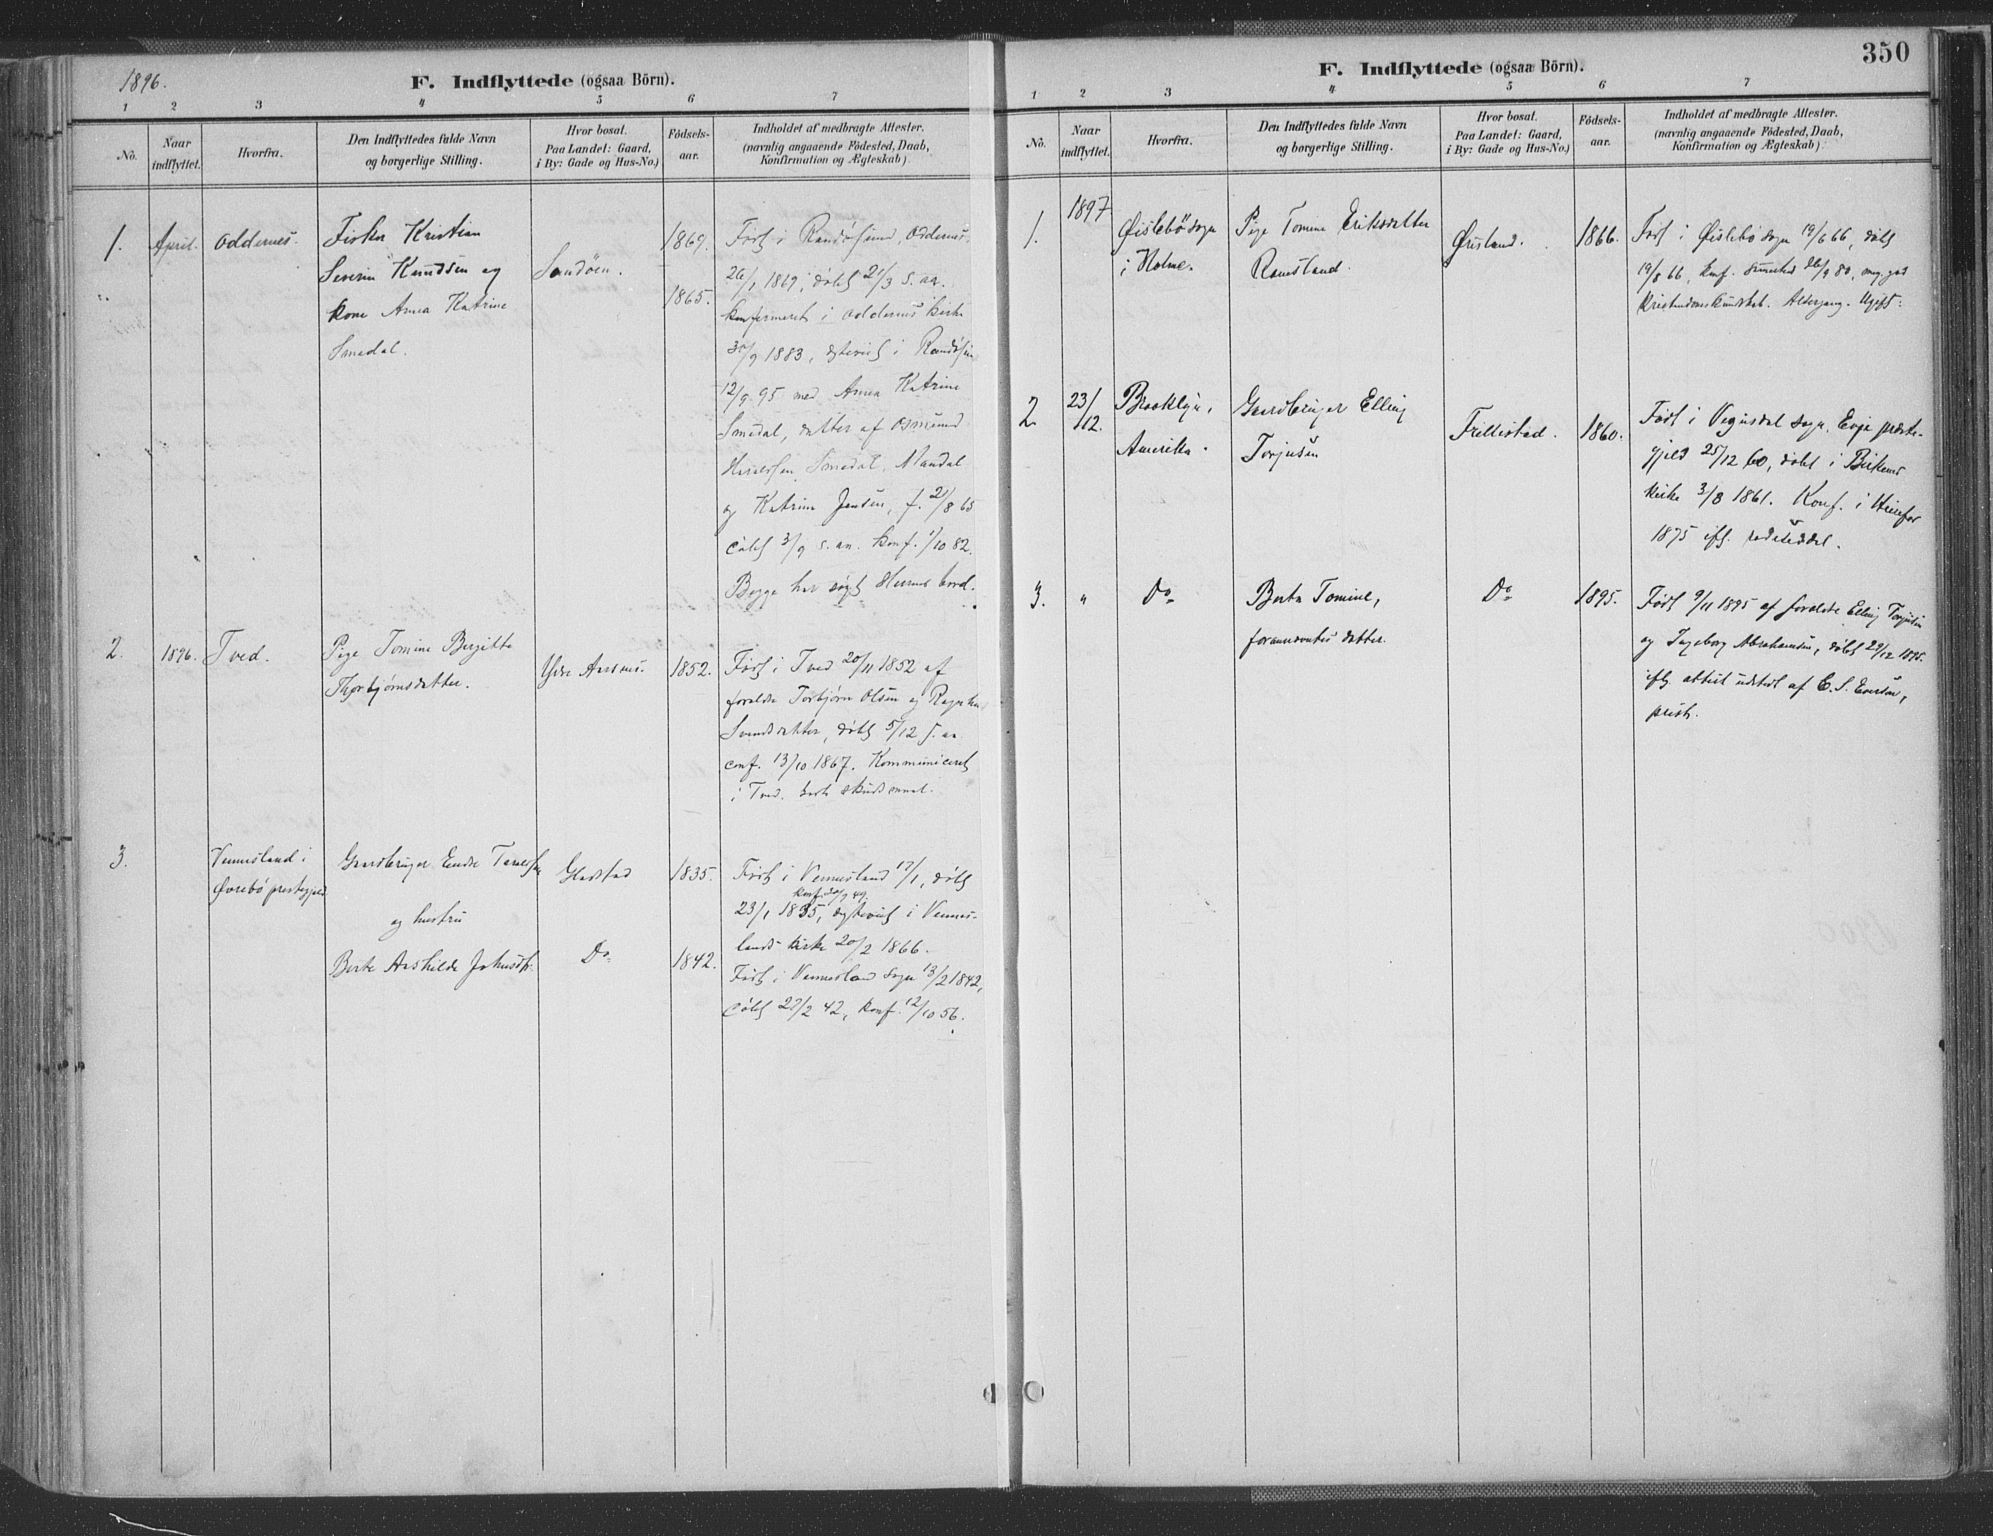 1896.
F. Indflyttede (ogsaa Börn).
1 2 3 4 5 6 7
No.
Naar indflyttet.
Hvorfra.
Den Indflyttedes fulde Navn
og borgerlige Stilling.
Hvor bosat.
Paa Landet: Gaard,
i By: Gade og Hus-No.)
Födsels-
aar.
Indholdet af medbragte Attester.
(navnlig angaaende Födested, Daab,
Konfirmation og Ægteskab)
1. April. Oddernes.
Fisker Kristian
Severin Knudsen og
kone Anna Katrine
Smedal.
Sandöen.
1869.
1865.
Født i Randøsund, Oddernes,
26/1 1869, døbt 21/3 s. aa.
konfirmeret i Oddernes kirke
30/9 1883, ægteviet i Randøsun
12/9 95 med Anna Katrine
Smedal, datter af Osmund
Smedal, Mandal
og Katrine Jensen, f. 21/8 65
døbt 3/9 s. aa. konf. 1/10 82.
Begge har søgt Herrens bord.
2. 1896. Tved.
Pige Tomine Birgitte
Thorbjørnsdatter.
Ydre Aasnes.
1852.
Født i Tved 20/11 1852 af
forældre Torbjørn Olsen og
Svendsdatter, døbt 5/12 s. aa.
conf. 13/10 1867. Kommuniceret
i Tved.
3.
Vennesland i
Øvrebö prestegjeld
Gaardbruger Endre
og hustru
Berte Aashilde
Gladstad
Do
1835.
1842.
Født i Vennesland 17/1, døbt
konf. 30/9 49.
23/1 1835, ægteviet i Vennes-
lands kirke 20/2 1866.
Født i Vennesland sogn 13/2 1842,
døbt 27/2 42, konf. 12/10 56.
350
F. Indflyttede (ogsaa Börn).
1 2 3 4 5 6 7
No.
Naar
indflyttet.
Hvorfra.
Den Indflyttedes fulde Navn
og borgerlige Stilling.
Hvor bosat.
Paa Landet: Gaard,
i By: Gade og Hus-No.)
Födsels-
aar.
Indholdet af medbragte Attester.
(navnlig angaaende Födested, Daab,
Konfirmation og Ægteskab)
1897
1.
Øislebö sogn
i Holme.
Pige Tomine Eriksdatter
Ramsland.
Øresland.
1866.
Født i Øislebö sogn 19/6 66, døbt
19/8 66, konf. 26/9 80, meg. god
kristendomskundskab. Altergang. Ugift.
2 23/12.
Brooklyn,
Amerika.
Gaardbruger Elling
Torjusen
Frillestad.
1860.
Født i Vegusdal sogn, Evje præste-
gjeld 25/12 60, døbt i Birkenes
kirke 3/3 1861. Konf. i
1875 ifl. sedel.
3. " Do
Berta Tomine,
forannævntes datter.
Do
1895.
Født 9/11 1895 af forældre Elling Torjusen
og Ingeborg Abrahamsen, døbt 29/12 1895.
ifl. attest udstedt af C. S. Everson,
prest.